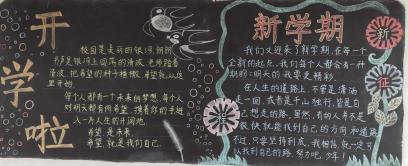 开
学
啦
校园是美丽的银河,朗朗
书声是银河上回荡的清波,也频踏着
清波,把希望的种子播撒,希望就从这
里开始。
每个人都有一个未来的梦想,每个人
对明天都有所希望,携着你的手进
入一片人生的开阔地。
希望是未来
希望就是我们自己
新学期
我们又迎来了新学期,在每一个
全新的起点,我们每个人都会有一种
期盼:明天的我要更精彩。
在人生的道路上,不管是清浊
是一团,或者是千山独行,皆是自
己想走的路。虽然,有的人并不是
很快就能找到自己的方向和道路
不过,只要坚持到底,我相信,就一定可
以找到自己的路。努力吧,少年!
新
征